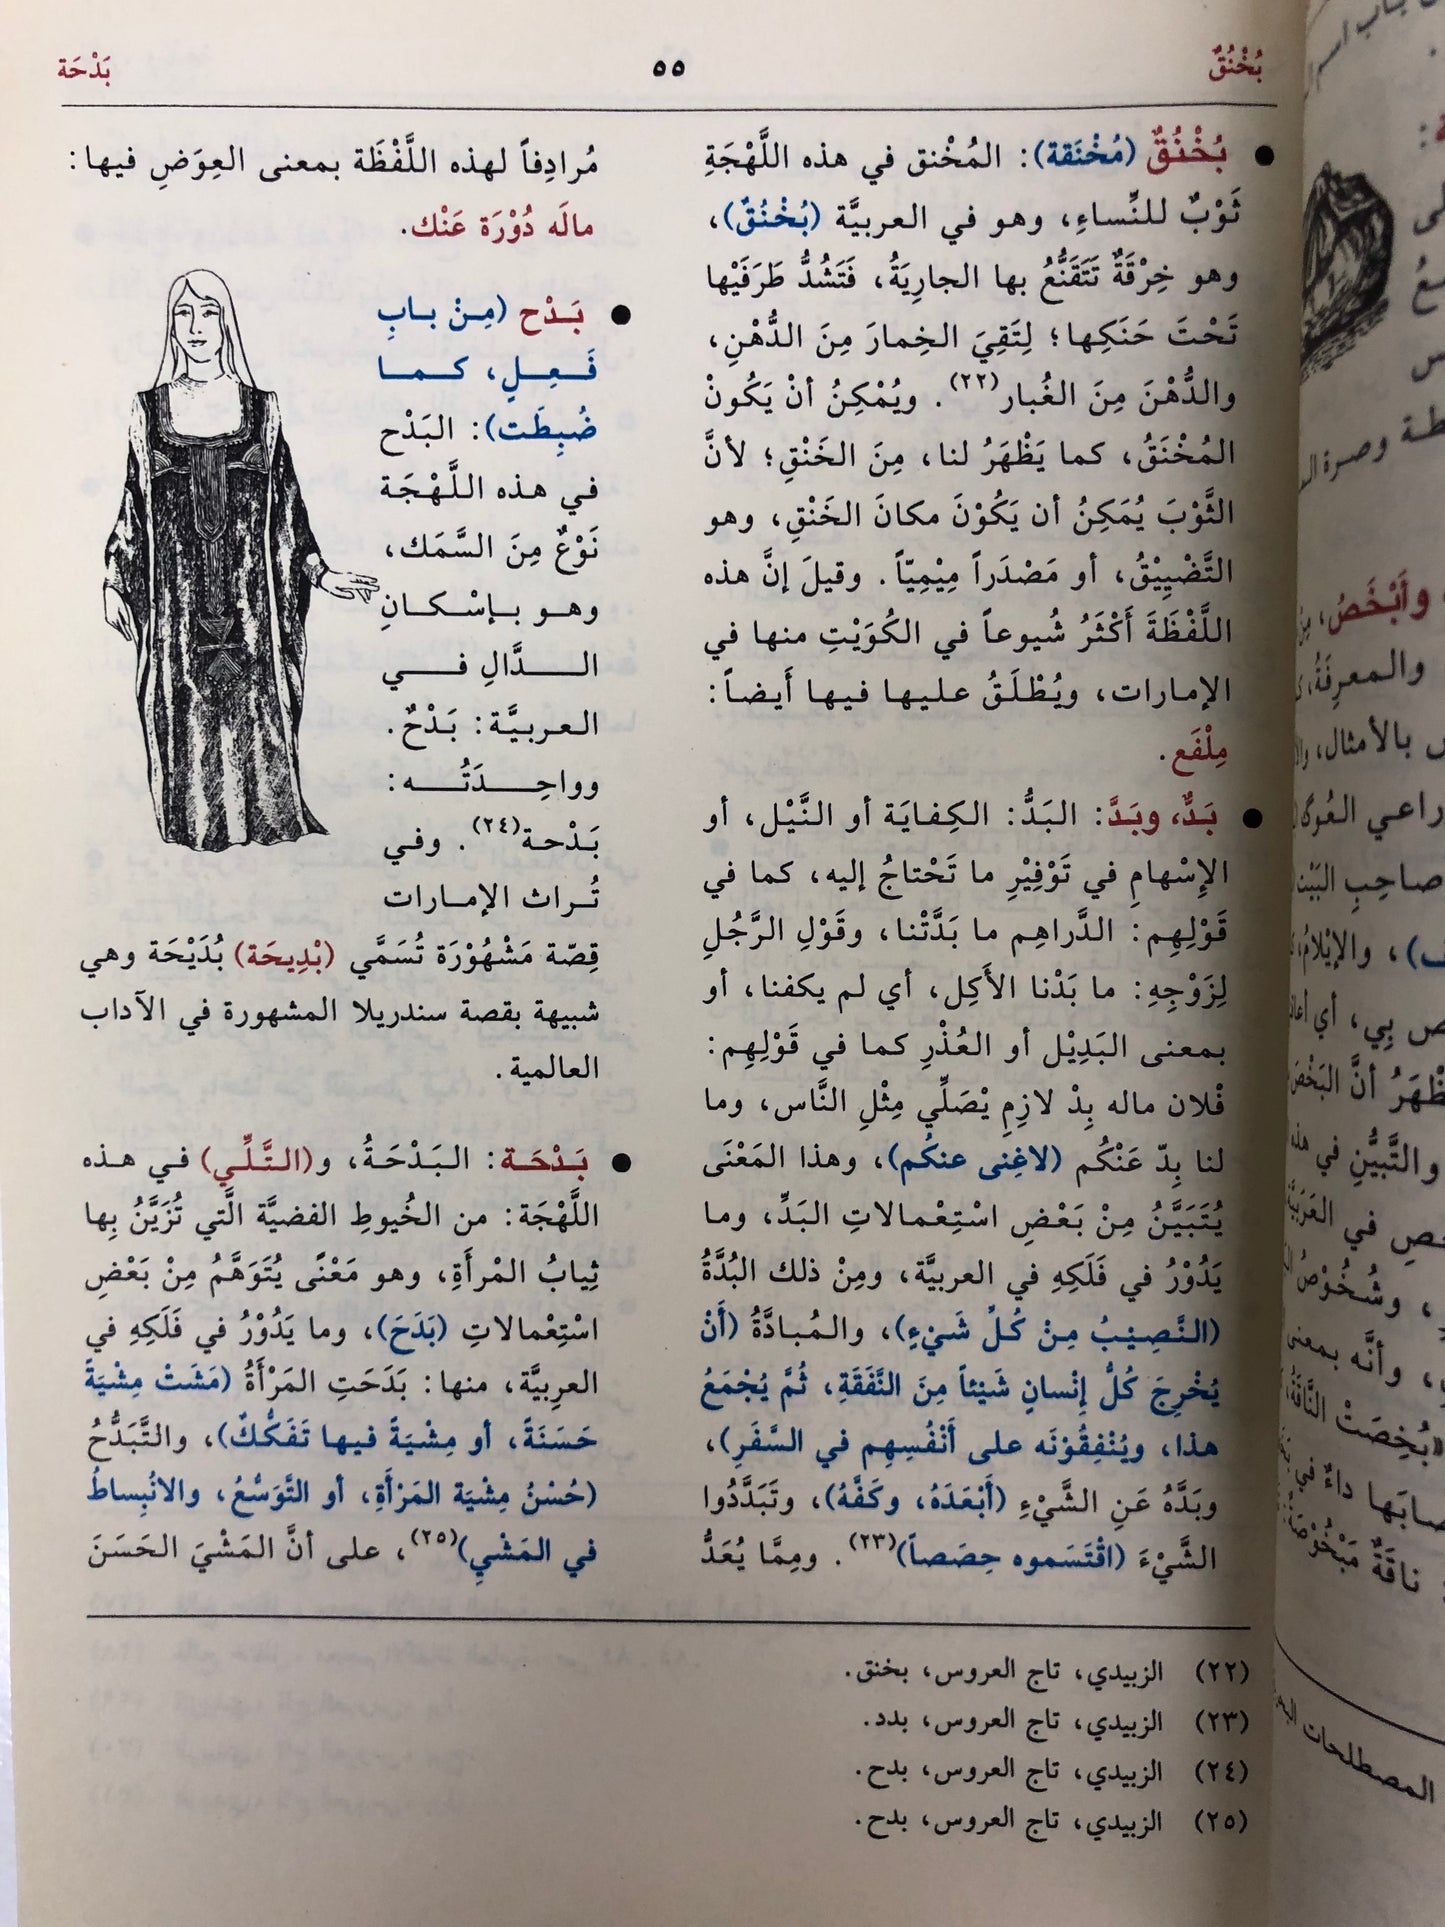 بُخْنُقٌ
٥٥
بَدْحَة
● بُخْنُقٌ (مُخْنَقة): المُخْنق في هذه اللَّهْجَةِ
ثَوْبٌ للنِّساءِ، وهو في العربيَّة (بُخْنُقٌ)،
وهو خِرْقَةٌ تَتَقَنَّعُ بها الجارِيَةُ، فَتَشُدُّ طَرَفَيْها
تَحْتَ حَنَكِها؛ لِتَقِيَ الخِمارَ مِنَ الدُّهْنِ،
والدُّهْنَ مِنَ الغُبار(٢٢). ويُمْكِنُ أنْ يَكُونْ
المُخْنَقُ، كما يَظْهَرُ لنا، مِنَ الخَنْقِ؛ لأنَّ
الثَّوْبَ يُمَكِنُ أن يَكُوْنَ مكانَ الخَنْقِ، وهو
التَّضْيِيْقُ، أو مَصْدَراً مِيْمِيّاً. وقيلَ إنَّ هذه
اللَّفْظَةَ أَكْثَرُ شُيوعاً في الكُوَيْتِ منها في
الإمارات، ويُطْلَقُ عليها فيها أَيضاً:
مِلْفَع.
● بَدٌّ، وبَدَّ: البَدُّ: الكِفايَة أو النَّيْل، أو
الإِسْهامِ في تَوْفِيْرِ ما تَحْتاجُ إليه، كما في
قَوْلِهِم: الدَّراهِم ما بَدَّتْنا، وقَوْلِ الرَّجُلِ
لِزَوْجِهِ: ما بَدْنا الأَكِل، أي لم يكفنا، أو
بمعنى البَدِيْل أو العُذْرِ كما في قَوْلِهِم:
فْلان ماله بِدْ لازِمِ يْصَلِّي مِثْلِ النَّاس، وما
لنا بِدّ عَنْكُم (لاغِنى عنكُم)، وهذا المَعْنَى
يُتَبَيَّنُ مِنْ بَعْضِ اسْتِعْمالاتِ البَدِّ، وما
يَدُوْرُ في فَلَكِهِ في العربيَّة، ومِنْ ذلك البُدَّةُ
(النَّصِيْبُ مِنْ كُلِّ شَيْءٍ)، والمُبادَّةُ (أَنْ
يُخْرِجَ كُلُّ إنْسانٍ شَيْئاً مِنَ النَّفَقَةِ، ثُمَّ يُجْمَعُ
هذا، ويُنْفِقُوْنَه على أَنْفُسِهِم في السَّفَرِ)،
وبَدَّهُ عَنِ الشَّيْءِ (أَبْعَدَهُ، وكَفَّهُ)، وتَبَدَّدُوا
الشَّيْءَ (اقْتَسَموه حِصَصاً)(٢٣). ومِمَّا يُعَدُّ
مُرادِفاً لهذه اللَّفْظَة بمعنى العِوَضِ فيها:
مالَه دُوْرَة عَنْك.
● بَدْح (مِنْ بابِ
فَعِلٍ، كما
ضُبِطَت): البَدْح
في هذه اللَّهْجَة
نَوْعٌ مِنَ السَّمَك،
وهو بإسْكانِ
الدَّالِ في
العربيَّة: بَدْحٌ.
وواحِدَتُه:
بَدْحة(٢٤). وفي
تُراث الإمارات
قِصّة مَشْهُوْرَة تُسَمَّي (بْدِيحَة) بُدَيْحَة وهي
شبيهة بقصة سندريلا المشهورة في الآداب
العالمية.
● بَدْحَة: البَدْحَةُ، و(التَّلِّي) في هذه
اللَّهْجَة: من الخُيوطِ الفضيَّة الَّتي تُزَيَّنُ بِها
ثِيابُ المْرأَةِ، وهو مَعْنًى يُتَوَهَّمُ مِنْ بَعْضِ
اسْتِعْمالاتِ (بَدَحَ)، وما يَدُوْرُ في فَلَكِهِ في
العرِبيَّة، منها: بَدَحَتِ المَرْأَةُ (مَشَتْ مِشْيَةً
حَسَنَةً، أو مِشْيَةً فيها تَفَكُّكٌ)، والتَّبَدُّحُ
(حُسْنُ مِشْيَة المَرْأَةِ، أو التَّوَسُّعُ، والانْبِساطُ
في المَشْيِ)(٢٥)، على أنَّ المَشْيَ الحَسَنَ
(٢٢) الزبيدي، تاج العروس، بخنق.
(٢٣) الزبيدي، تاج العروس، بدد.
(٢٤) الزبيدي، تاج العروس، بدح.
(٢٥) الزبيدي، تاج العروس، بدح.